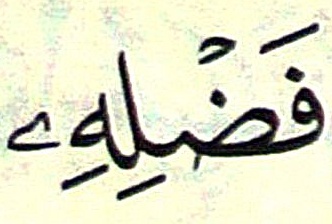 فَضْلِهِۦ